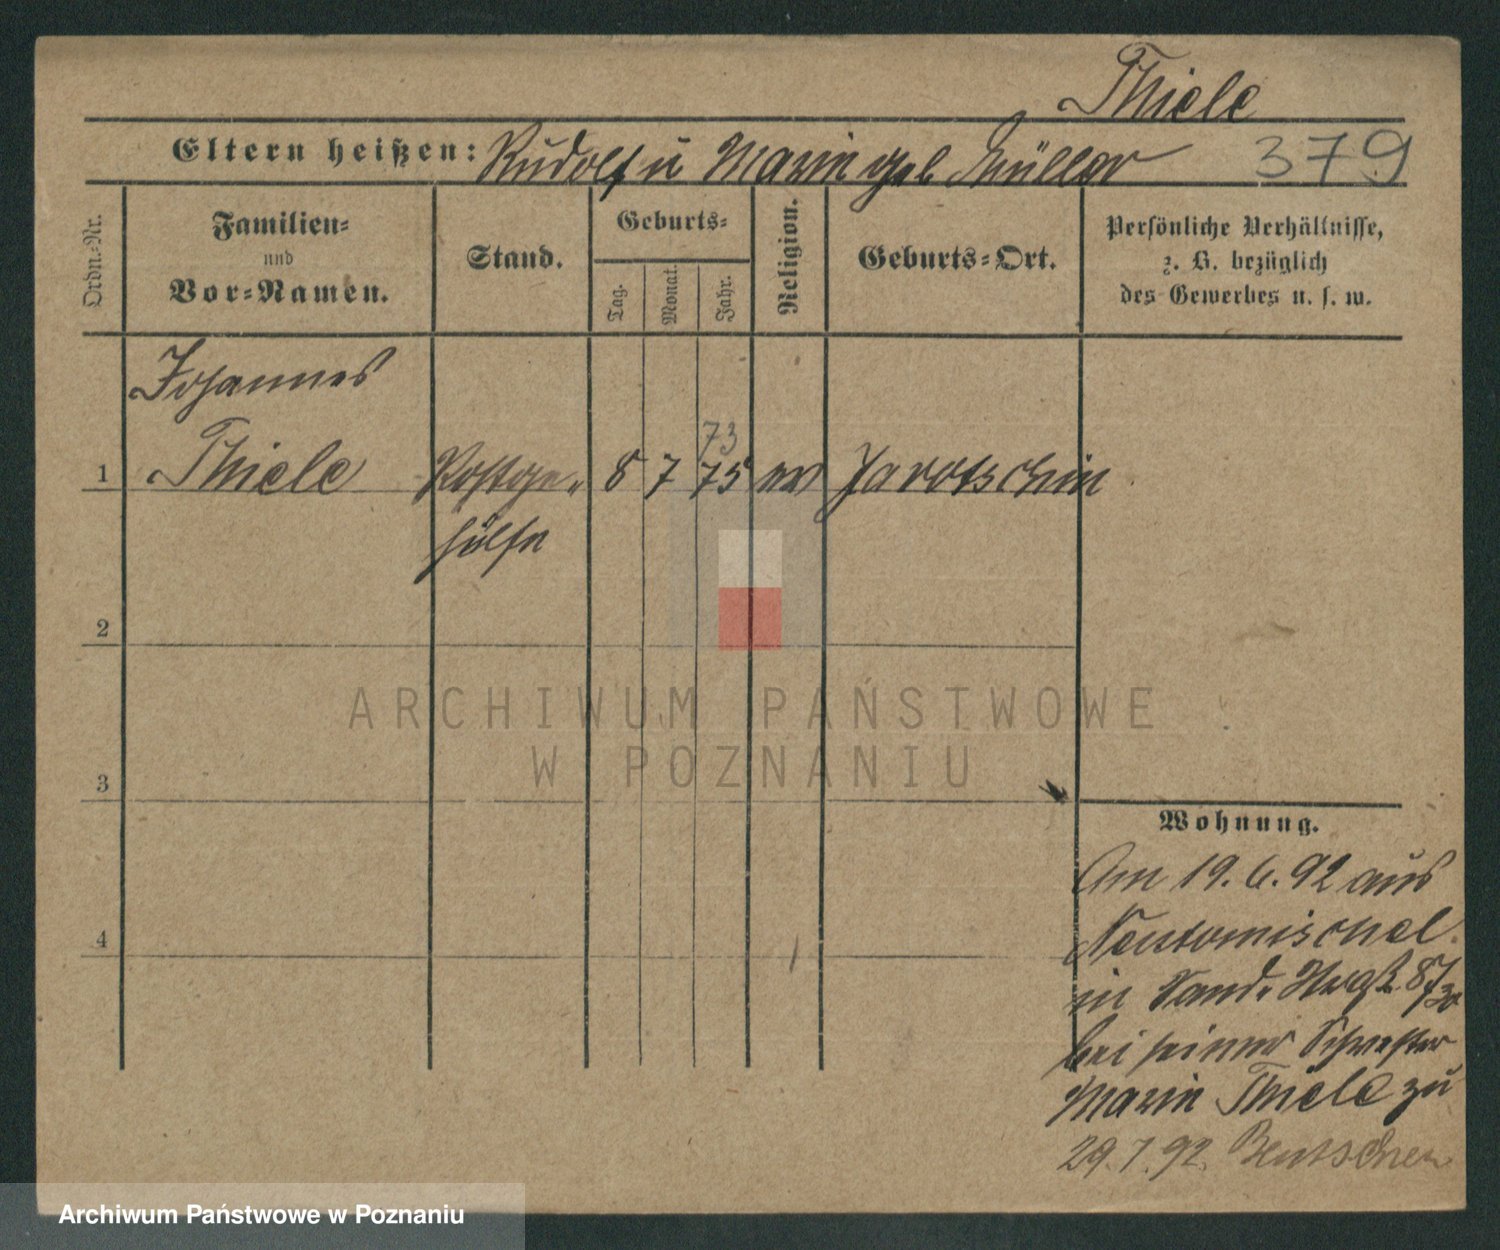 Thiele
Eltern heißen: Rudolf u Marie geb Müller 379
Ordn.-Nr.
Familien-
und
Vor-Namen.
Stand.
Geburts-
Tag.
Monat.
Jahr.
Religion.
Geburts-Ort.
Persönliche Verhältnisse,
z. B. bezüglich
des Gewerbes u. s. w.
Johannes
73
1 Thiele Postge- 8 7 75 ev Jarotschin
hülfe
2
ARCHIWUM PAŃSTWOWE
W POZNANIU
3
Wohnung.
Am 19.6.92 aus
Neutomischel
in 8/30
bei seiner Schwester
Marie Thiele zu
29.7.92. Bentschen
4
Archiwum Państwowe w Poznaniu